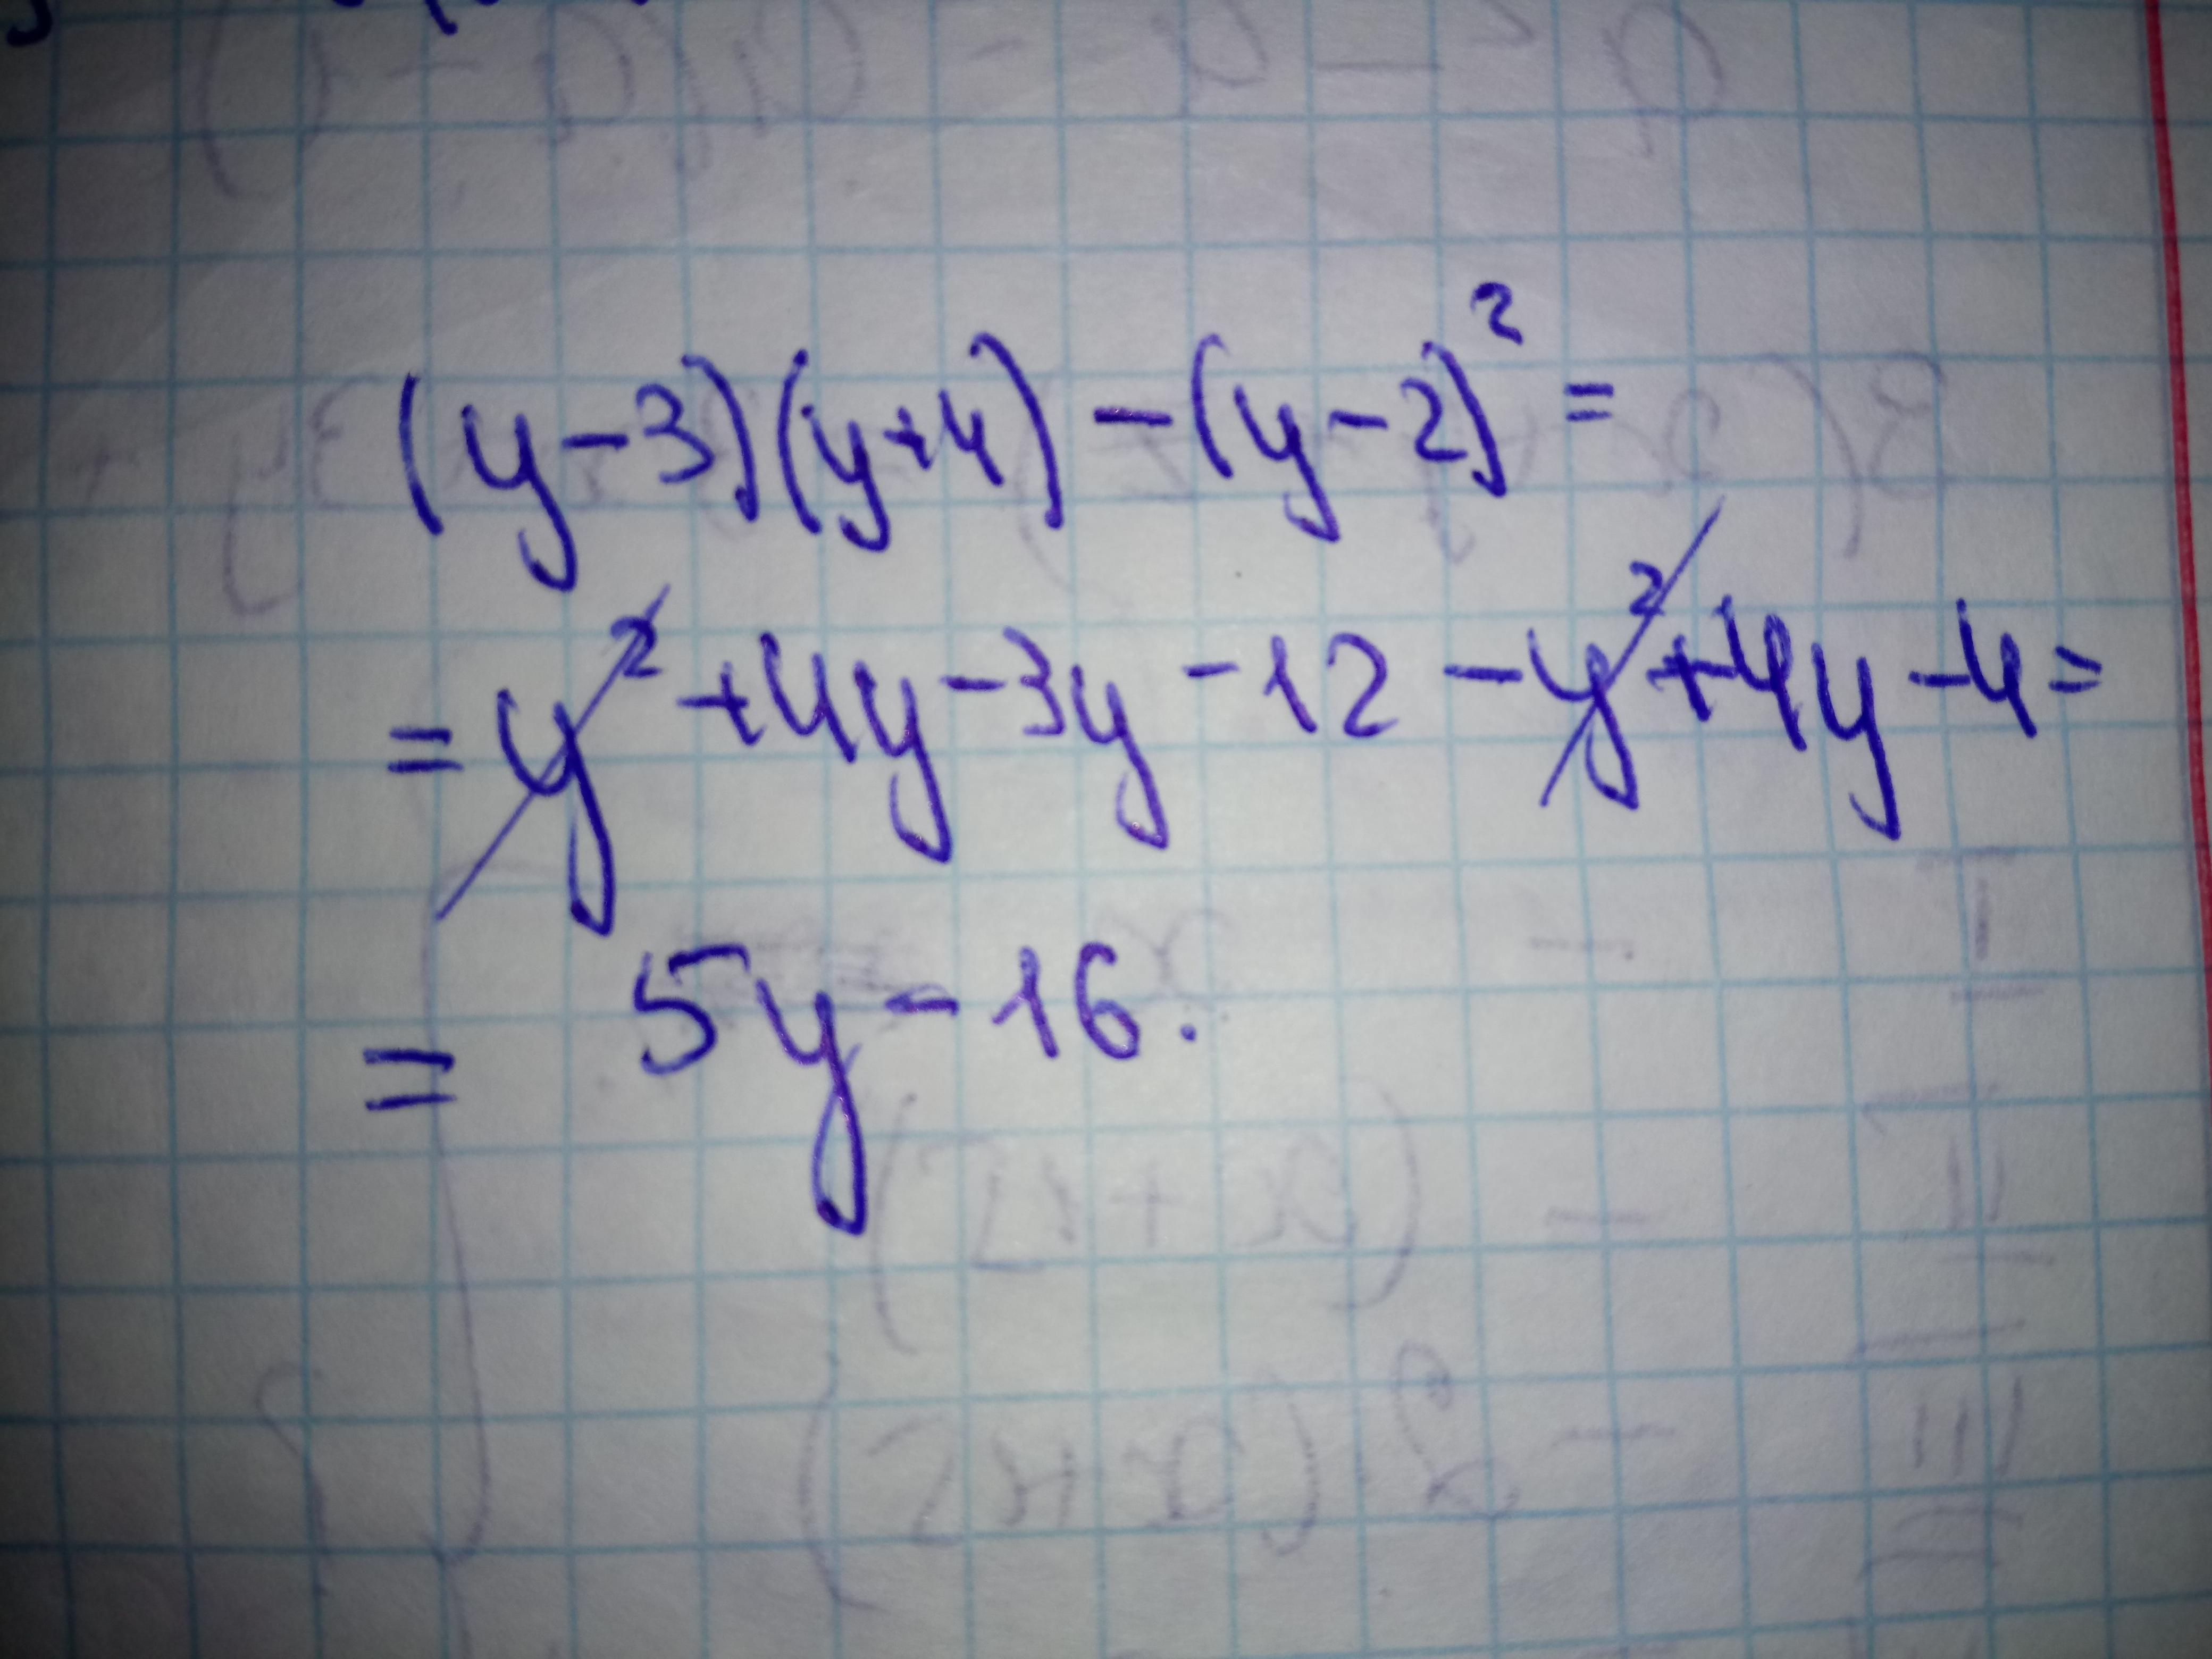 (y-3)(y+4)-(y-2)²=
=y²+4y-3y-12-y²+4y-4=
= 5y-16.